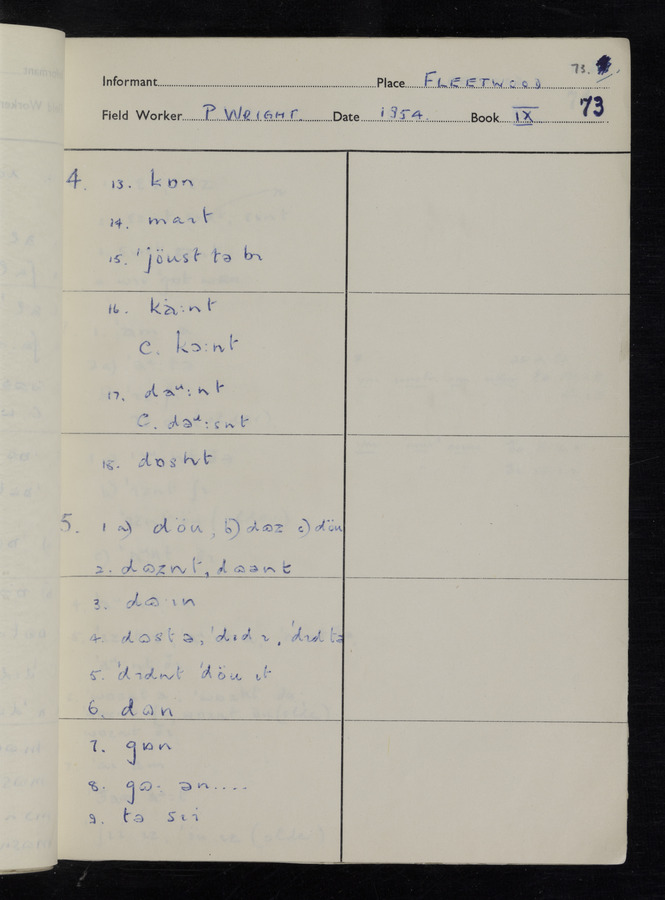 73.
Informant Place FLEETWOOD
Field Worker P WRIGHT. Date 1954. Book IX 73
4. 13. kɒn
14. maɪt
15. ˈjöust tə bɪ
16. ka:nt
C. kɔ:nt
17. daᵘ:nt
18. dɒsnt
5. 1 a) döu, b) dɷz c) döu
2. dɷznt, dɷənt
3. dɷ·ɪn
4. dɷstə, ˈdɪdɪ, ˈdɪdtə
5. ˈdɪdnt ˈdöu ɪt
6. dɷn
7. gɒn
8. gɷ· ən....
9. tə sɪi